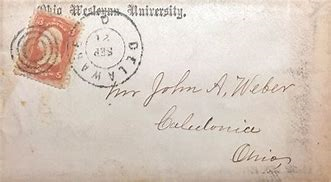 Ohio Wesleyan University.
DELAWARE O
SEP
21
Mr John A, Weber
Caledonia
Ohio